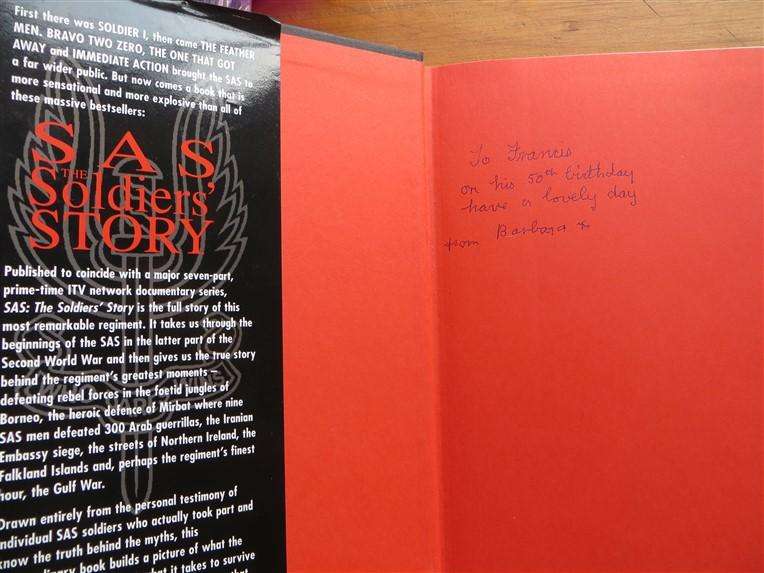 First there was SOLDIER I, then came THE FEATHER
MEN. BRAVO TWO ZERO, THE ONE THAT GOT
AWAY and IMMEDIATE ACTION brought the SAS to
a far wider public. But now comes a book that is
more sensational and more explosive than all of
these massive bestsellers:
SAS
THE
Soldiers'
STORY
Published to coincide with a major seven-part,
prime-time ITV network documentary series,
SAS: The Soldiers' Story is the full story of this
most remarkable regiment. It takes us through the
beginnings of the SAS in the latter part of the
Second World War and then gives us the true story
behind the regiment's greatest moments –
defeating rebel forces in the foetid jungles of
Borneo, the heroic defence of Mirbat where nine
SAS men defeated 300 Arab guerrillas, the Iranian
Embassy siege, the streets of Northern Ireland, the
Falkland Islands and, perhaps the regiment's finest
hour, the Gulf War.
Drawn entirely from the personal testimony of
individual SAS soldiers who actually took part and
know the truth behind the myths, this
book builds a picture of what the
what it takes to survive
that
To Francis
on his 50th birthday
have a lovely day
from Barbara x